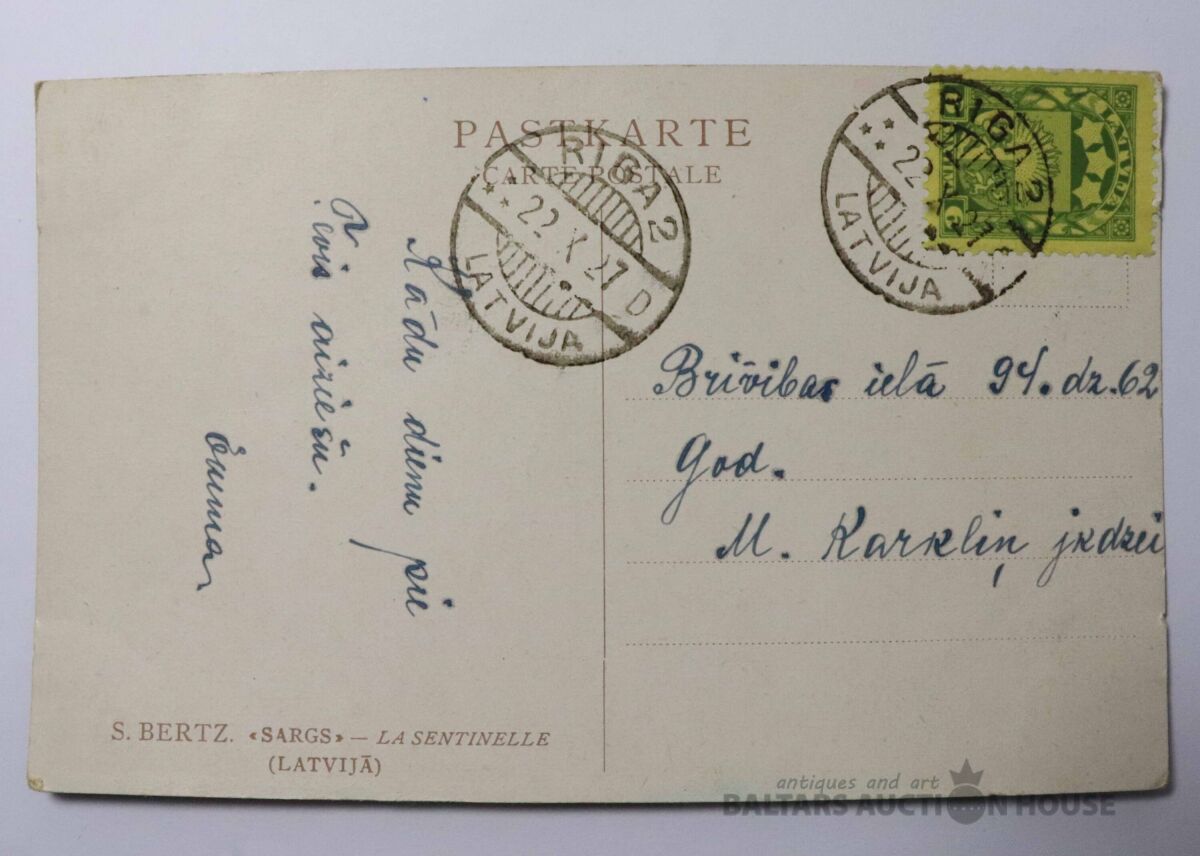 PASTKARTE
CARTE POSTALE
RIGA 2
22 X 27 D
LATVIJA
RIGA 2
22 X 27
LATVIJA
LATVIJA
Kādu dienu pie
Tevis aiziešu.
Emma
Brīvibas ielā 94. dz. 62
God.
M. Karkliņ jkdzei
S. BERTZ. «SARGS» — LA SENTINELLE
(LATVIJĀ)
antiques and art
BALTARS AUCTION HOUSE